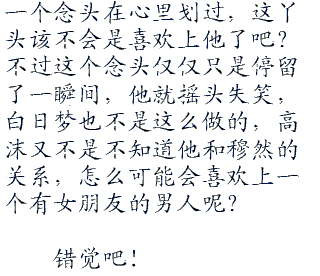 一个念头在心里划过，这丫
头该不会是喜欢上他了吧？
不过这个念头仅仅只是停留
了一瞬间，他就摇头失笑，
白日梦也不是这么做的，高
沫又不是不知道他和穆然的
关系，怎么可能会喜欢上一
个有女朋友的男人呢？
错觉吧！